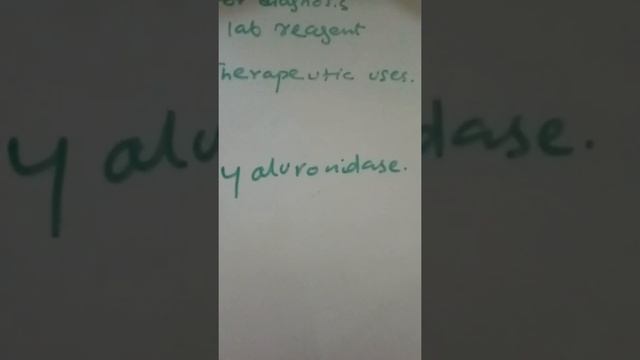 diagnosis
lab reagent
herapeutic uses.
yaluronidase.